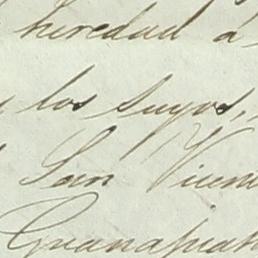 heredad á
los suyos,
San Vicen
Guanajuat